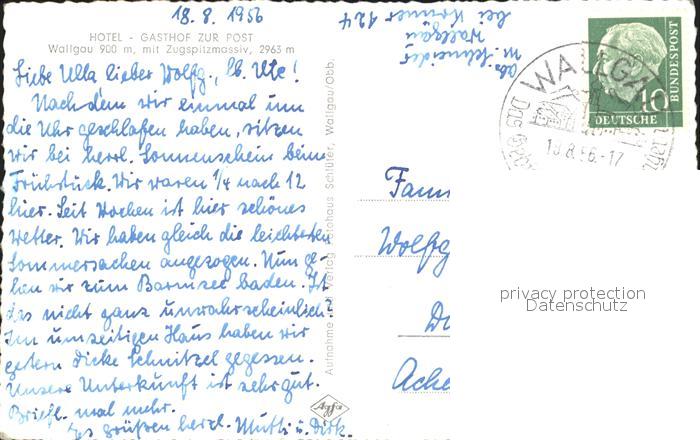 18. 8. 1956
HOTEL - GASTHOF ZUR POST
Wallgau 900 m, mit Zugspitzmassiv, 2963 m
Liebe Ulla lieber Wolfg., lb. Ute!
Nachdem wir einmal um
die Uhr geschlafen haben, sitzen
wir bei herrl. Sonnenschein beim
Frühstück. Wir waren 1/4 nach 12
hier. Seit Wochen ist hier schönes
Wetter. Wir haben gleich die leichtesten
Sommersachen angezogen. Nun ge-
hen wir zum Barmsee baden. Ist
das nicht ganz unwahrscheinlich?
Im umseitigen Haus haben wir
gestern dicke Schnitzel gegessen.
Unsere Unterkunft ist sehr gut.
Briefl. mal mehr.
Es grüßen herzl. Mutti u. Dirk.
Aufnahme Verlag Fotohaus Schlüter, Wallgau/Obb.
Agfa
Abs. Schneider
Wallgau
bei Konner 124
10
DEUTSCHE
BUNDESPOST
WALLGAU
18.8.56.-17
Fam
Wolfg
Ache
privacy protection
Datenschutz